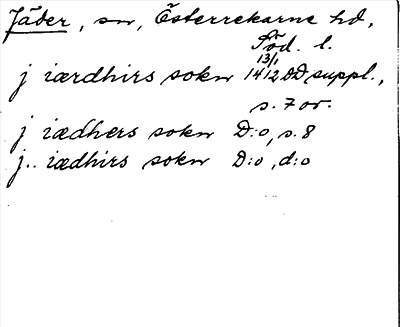 Jäder, sn, Österrekarne hd,
Söd. l.
j iærdhirs sokn 13/1 1412 DD suppl.,
s. 7 or.
j iædhers sokn D:o, s. 8
j.. iædhirs sokn D:o, d:o